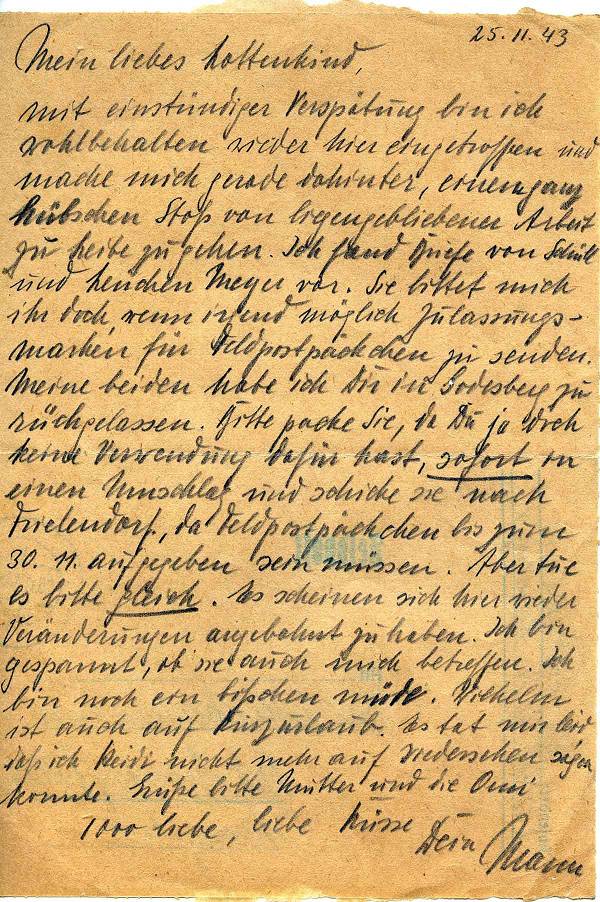 25.11.43
Mein liebes Lottenkind,
mit einstündiger Verspätung bin ich
wohlbehalten wieder hier eingetroffen und
mache mich gerade dahinter, einem ganz
hübschen Stoß von liegengebliebener Arbeit
zu Leibe zu gehen. Ich fand Briefe von
und Henchen Meyer vor. Sie bittet mich
ihr doch, wenn irgend möglich Zulassungs-
marken für Feldpostpäckchen zu senden.
Meine beiden habe ich Dir in Godesberg zu
rückgelassen. Bitte packe Sie, da Du ja doch
keine Verwendung dafür hast, sofort in
einen Umschlag und schicke sie nach
Frielendorf, da Feldpostpäckchen bis zum
30.11. aufgegeben sein müssen. Aber tue
es bitte gleich. Es scheinen sich hier wieder
Veränderungen angebahnt zu haben. Ich bin
gespannt, ob sie auch mich betreffen. Ich
bin noch ein bißchen müde. Wilhelm
ist auch auf Kurzurlaub. Es tat mir leid
daß ich Heidi nicht mehr auf Wiedersehen sagen
konnte. Grüße bitte Mutter und die Omi
1000 liebe, liebe Küsse
Dein Mann